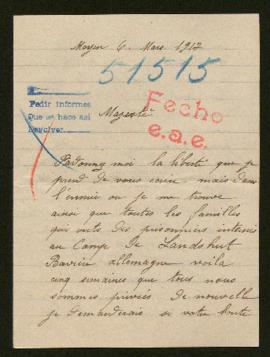 Moyen 6 Mars 1917
51515
Pedir informes
Que se hace así
Devolver
Fecho
e.a.e.
Majesté
Padonnez moi la liberté que je
prend de vous écrire mais dans
l'ennuie ou je me trouve
ainsi que toutes les familles
qui ont des prisonniers internés
au Camp de Landshut
Bavière allemagne voilà
cinq semaines que tous nous
sommes privées de nouvelle
je demanderais si votre haute